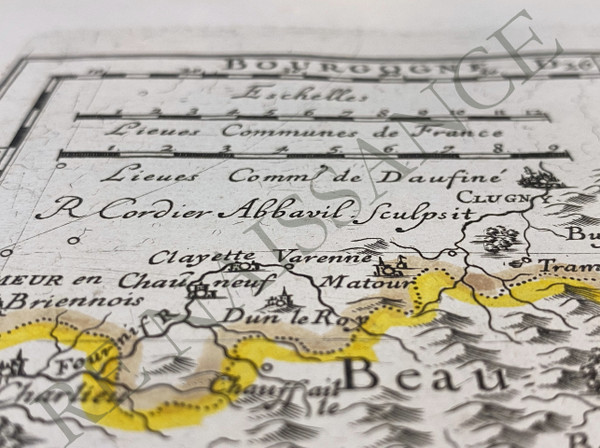 BOURGOGNE
Eschelles
1 2 3 4 5 6 7 8 9 10 11 12
Lieues Communes de France
1 2 3 4 5 6 7 8 9
Lieues Comm.^s de Daufiné
R Cordier Abbavil. Sculpsit
CLUGNY
Clayette Varenne
MEUR en Chaũneuf Matour Tram
Briennois
Dun le Roy
Charlieu Chauffaille
Beau
RENAISSANCE